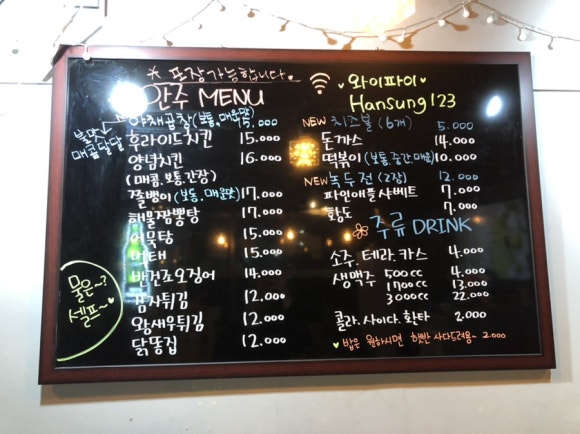 * 포장가능합니다
안주 MENU
불맛
매콤달달
야채곱찰(보통,매운맛) 15.000
후라이드치킨 15.000
양념치킨 16.000
(매콤.보통,간장)
쫄뱅이(보통,매운맛) 17.000
해물짬뽕탕 17.000
어묵탕 15.000
먹태 15.000
반건조오징어 14.000
감자튀김 12.000
왕새우튀김 12.000
닭똥집 12.000
물은~?
셀프~
와이파이
Hansung123
NEW 치즈볼 (6개) 5.000
돈까스 14.000
떡볶이(보통,중간,매움) 10.000
NEW 녹두전(2장) 12.000
파인애플샤베트 7.000
황도 7.000
주류 DRINK
소주.테라.카스 4.000
생맥주 500cc 4.000
1700cc 13.000
3000cc 22.000
콜라.사이다.환타 2.000
밥은 원하시면 햇반 사다드려용~ 2.000